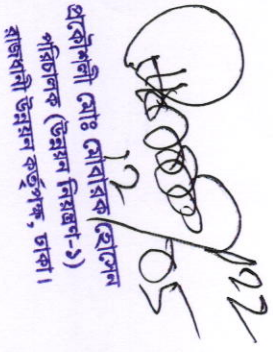 প্রকৌশলী মোঃ মোবারক হোসেন
পরিচালক (উন্নয়ন নিয়ন্ত্রণ-১)
রাজধানী উন্নয়ন কর্তৃপক্ষ, ঢাকা।